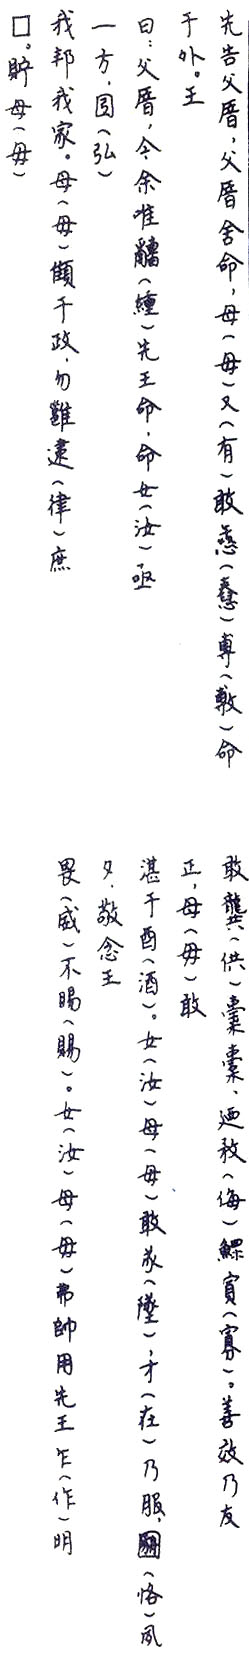 先告父厝，父厝舍命，母（毋）又（有）敢憃（惷）尃（敷）命
于外。王
曰：父厝，今余唯（纏）先王命，命女（汝）亟
一方，㘝（弘）
我邦我家。母（毋）顀于政，勿雝逮（律）庶
□。貯母（毋）
敢龏（供）橐橐，廼敄（侮）鰥寡（寡）。善效乃友
正，母（毋）敢
湛于酉（酒）。女（汝）母（毋）敢㒸（墜），才（在）乃服，（恪）夙
夕，敬念王
畏（威）不賜（賜）。女（汝）母（毋）弗帥用先王乍（作）明